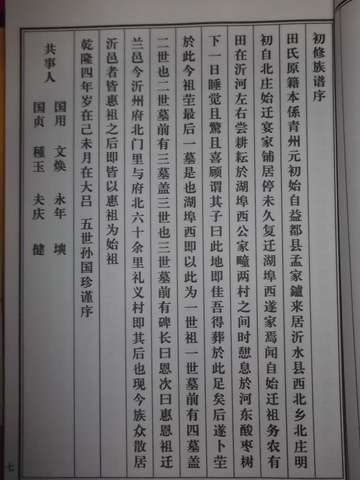 初修族谱序
田氏原籍本係青州元初始自益都县孟家鑪来居沂水县西北乡北庄明
初自北庄始迁宴家铺居停未久复迁湖埠西遂家焉闻自始迁祖务农有
田在沂河左右尝耕耘於湖埠西公家疃两村之间时憇息於河东酸枣树
下一日睡觉且驚且喜顾谓其子曰此地即佳吾得葬於此足矣后遂卜茔
於此今祖茔最后一墓是也湖埠西即以此为一世祖一世墓前有四墓盖
二世也二世墓前有三墓盖三世也三世墓前有碑长曰恩次曰惠恩祖迁
兰邑今沂州府北门里与府北六十余里礼义村即其后也现今族众散居
沂邑者皆惠祖之后即皆以惠祖为始祖
乾隆四年岁在己未月在大吕 五世孙国珍谨序
共事人
国用 文焕 永年 墺
国贞 種玉 夫庆 健
七